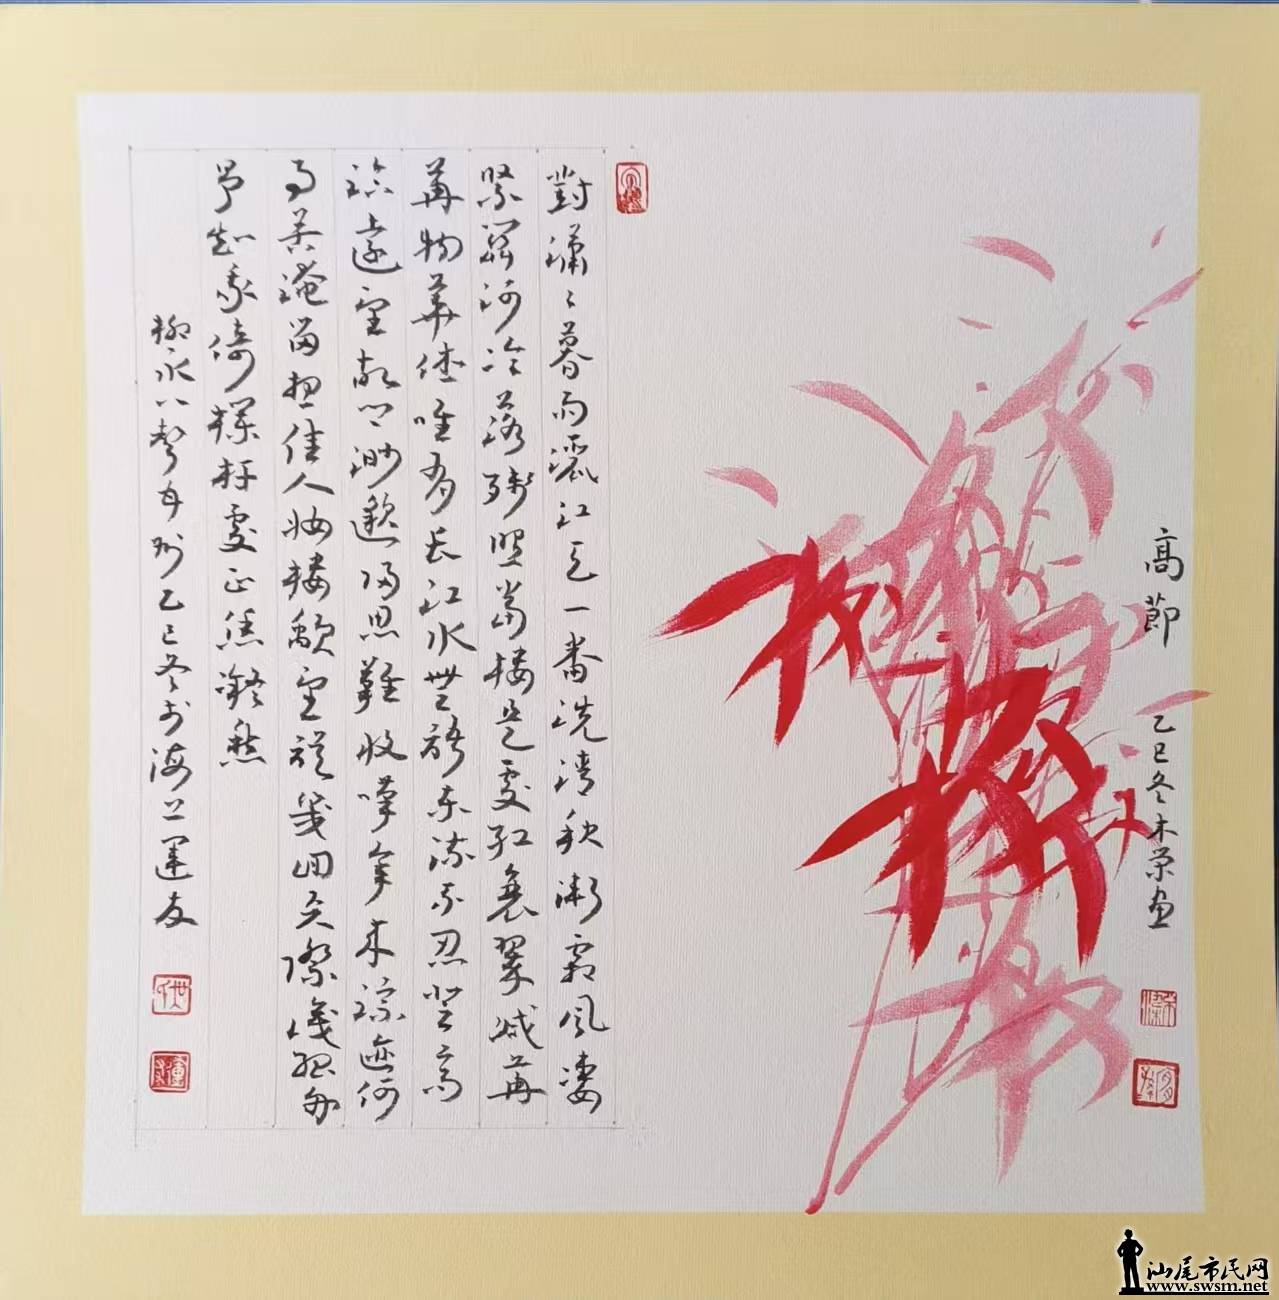 高節
乙巳冬木榮画
對瀟〻暮雨灑江天一番洗清秋漸霜風凄
緊關河冷落殘照當樓是處紅衰翠減苒
苒物華休唯有長江水無語東流不忍登高
臨遠望故鄉渺邈歸思難收嘆年來踪迹何
事苦淹留想佳人妝樓顒望誤幾回天際識歸舟
爭知我倚欄杆處正恁凝愁
柳永八聲甘州乙巳冬於海上運友
汕尾市民网
www.swsm.net